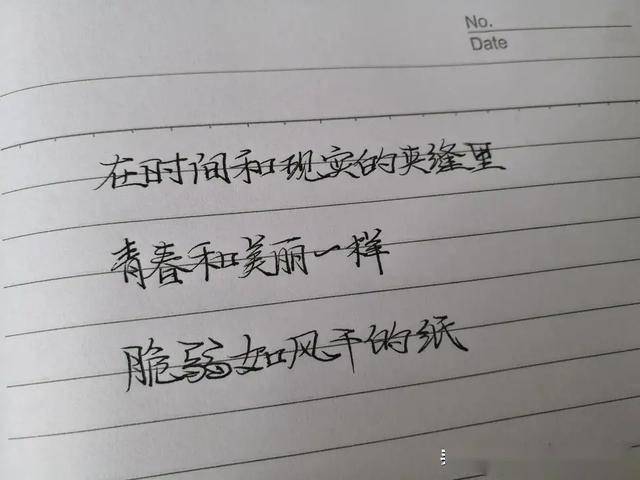 No.
Date
在时间和现实的夹缝里
青春和美丽一样
脆弱如风干的纸